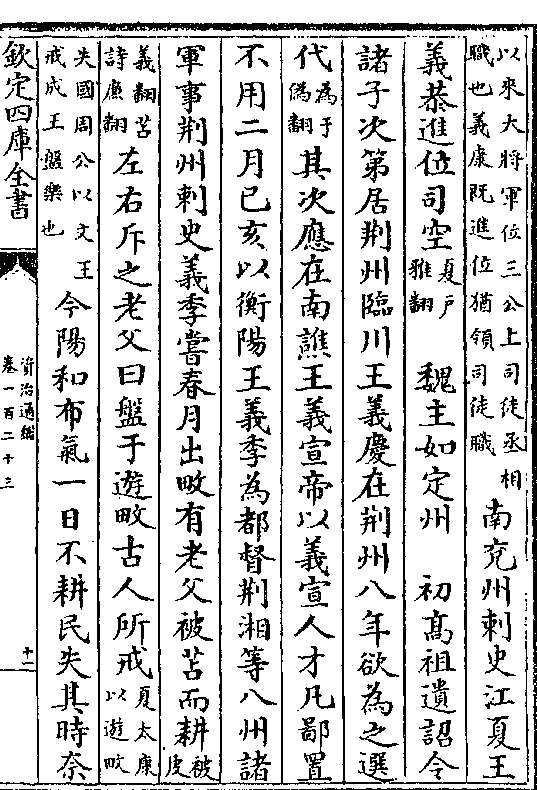 以來大將軍位三公上司徒丞相
職也義康既進位猶領司徒職
南兖州刺史江夏王
義恭進位司空
夏戸
雅翻
魏主如定州　初髙祖遺詔令
諸子次第居荆州臨川王義慶在荆州八年欲為之選
代
為于
偽翻
其次應在南譙王義宣帝以義宣人才凡鄙置
不用二月己亥以衡陽王義季為都督荆湘等八州諸
軍事荆州刺史義季嘗春月出畋有老父被苫而耕
被皮
義翻苫
詩亷翻
左右斥之老父曰盤于遊畋古人所戒
夏太康
以遊畋
失國周公以文王
戒成王盤樂也
今陽和布氣一日不耕民失其時奈
欽定四庫全書
資治通鑑
卷一百二十三
十一